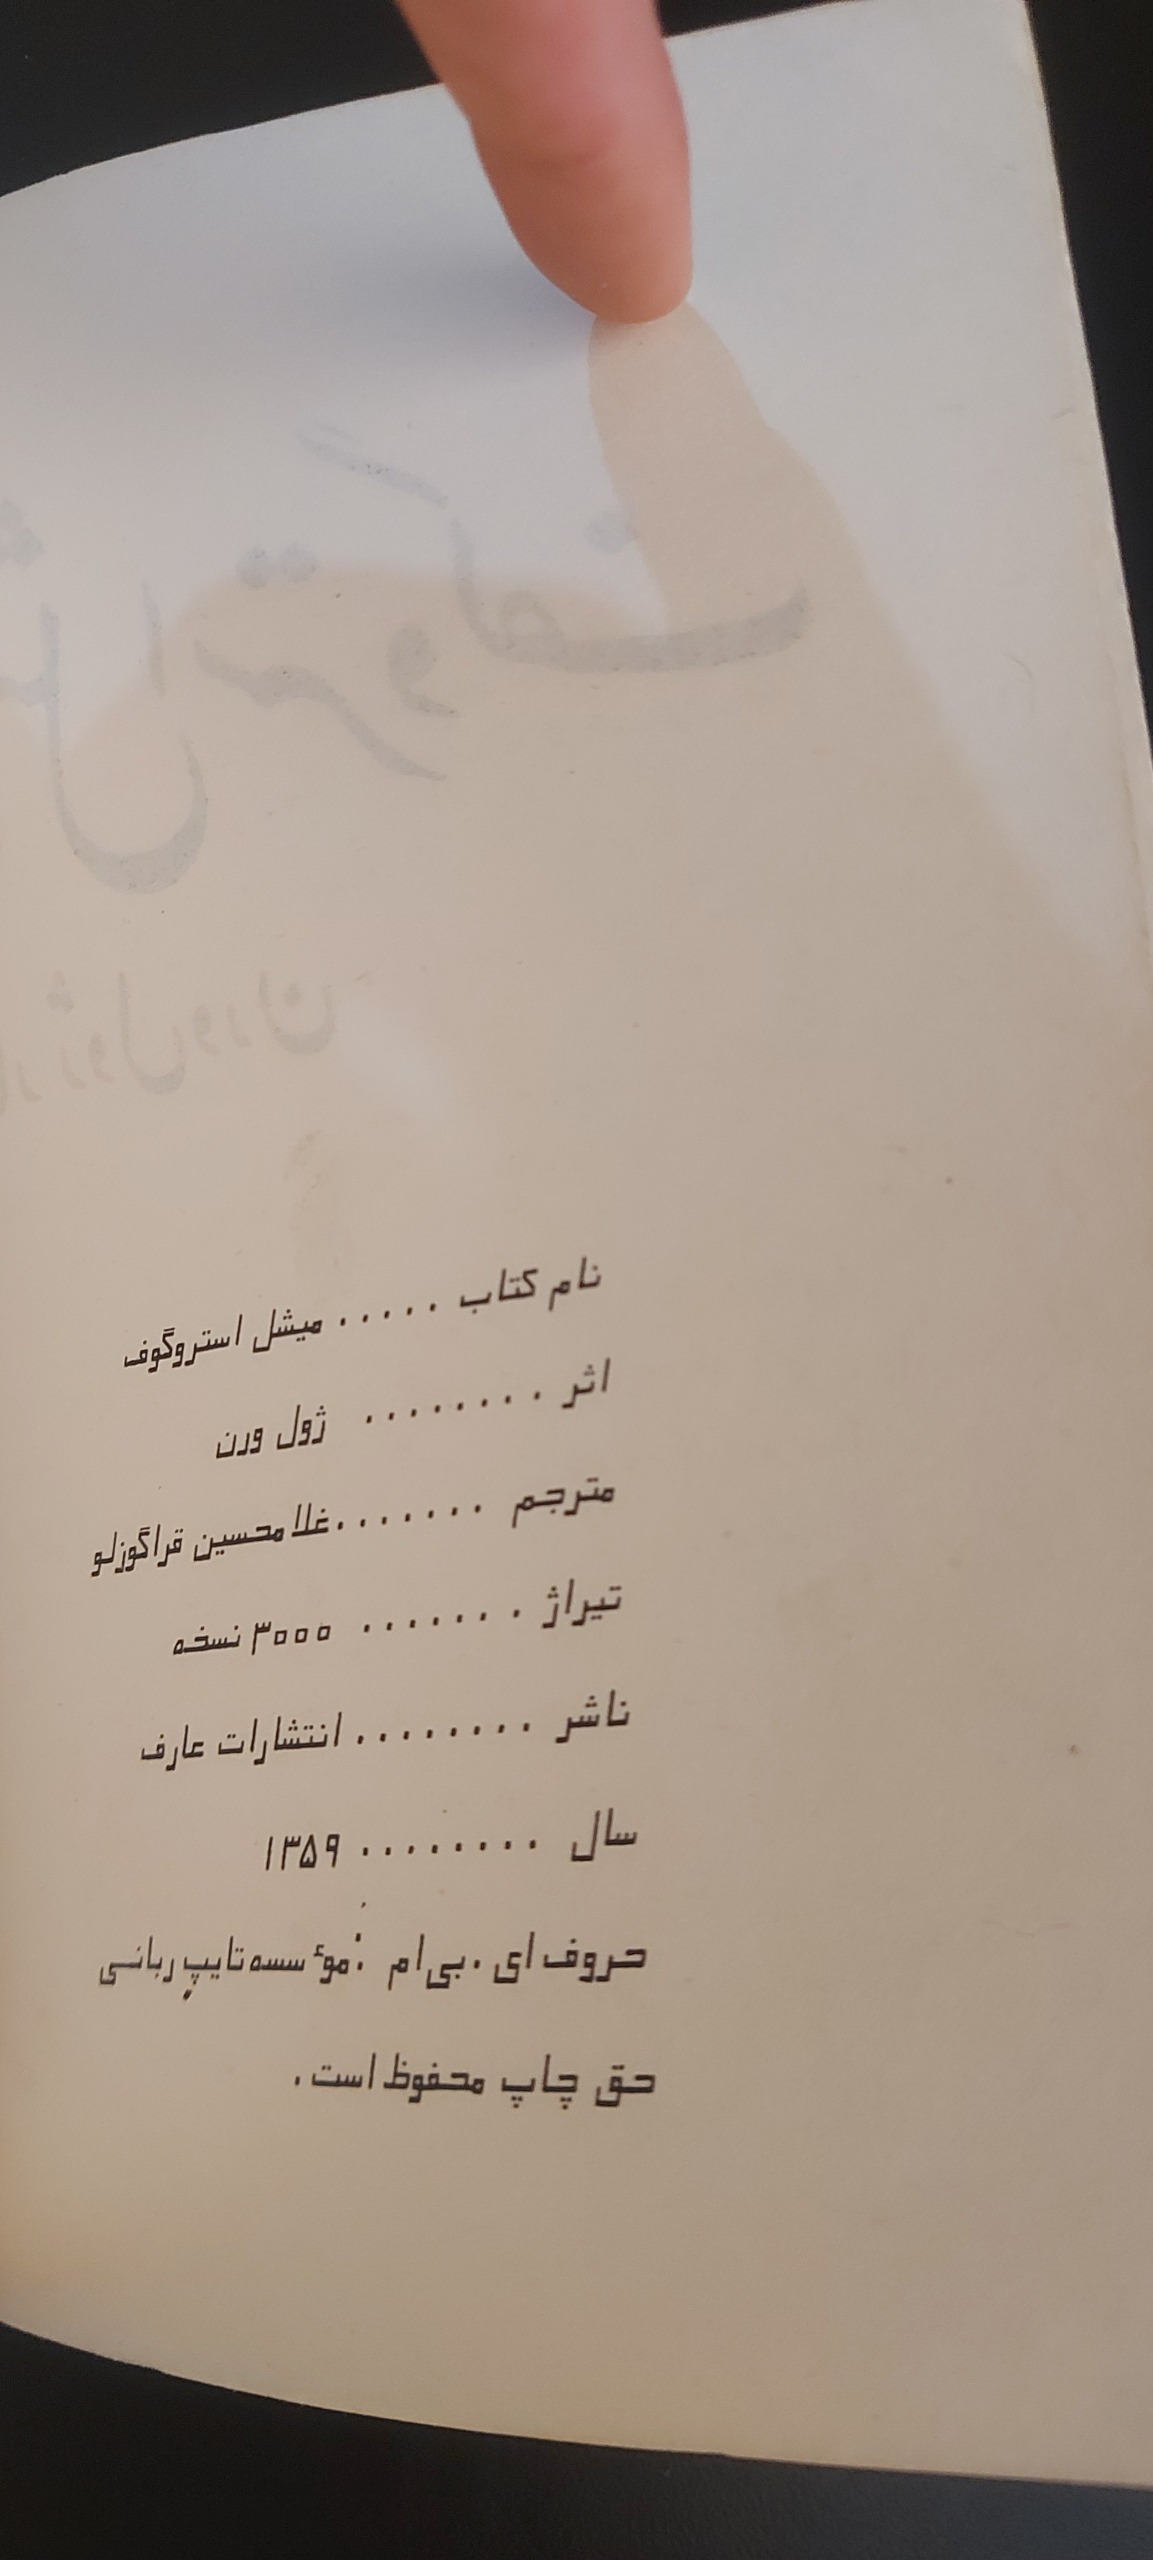 نام کتاب ..... میشل استروگوف
اثر ........ ژول ورن
مترجم .......غلامحسین قراگوزلو
تیراژ ....... ۳۰۰۰ نسخه
ناشر ........ انتشارات عارف
سال ........ ۱۳۵۹
حروف ای.بی ام : موٴسسه تایپ ربانی
حق چاپ محفوظ است.